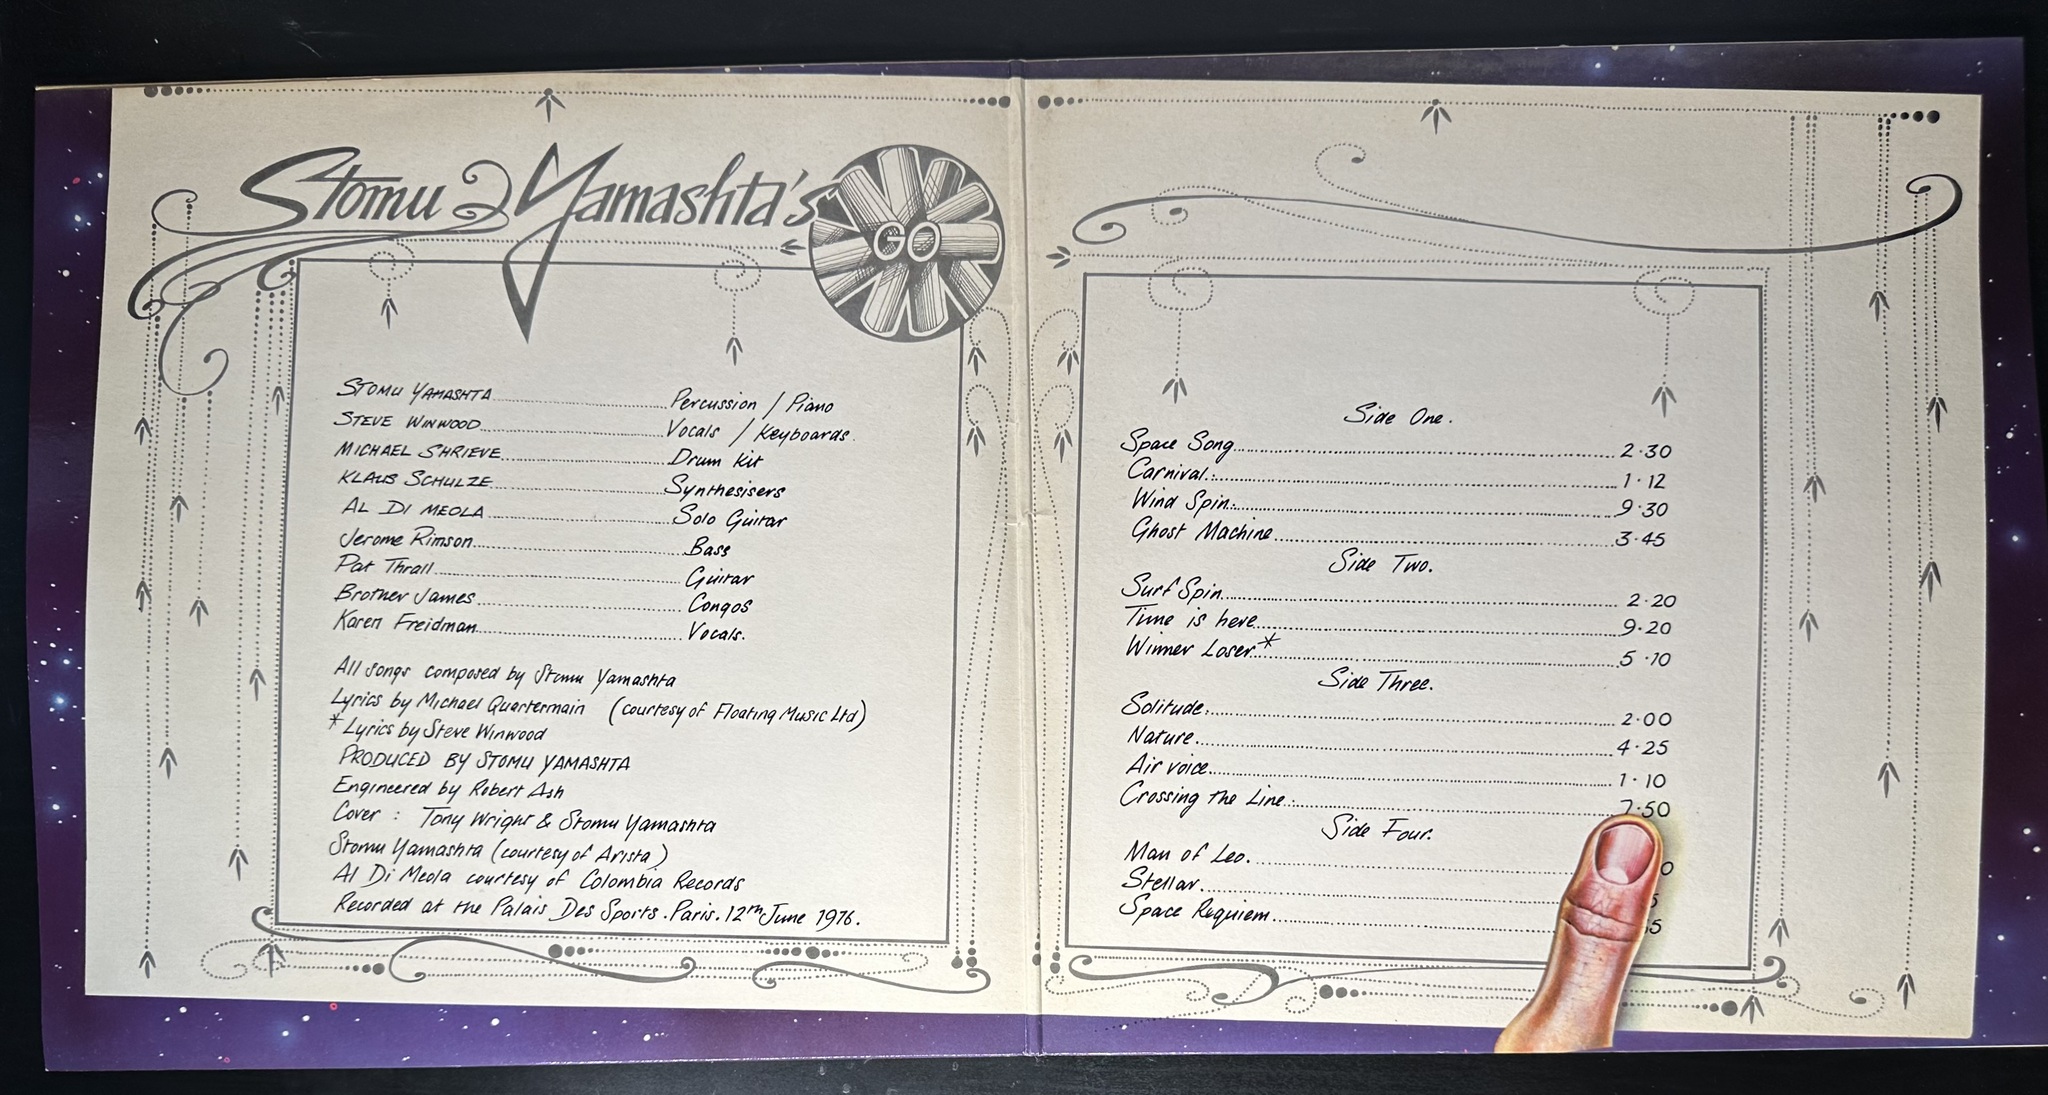 Stomu Yamashta's GO
STOMU YAMASHTA Percussion / Piano
STEVE WINWOOD Vocals / Keyboards.
MICHAEL SHRIEVE Drum Kit
KLAUS SCHULZE Synthesisers
AL DI MEOLA Solo Guitar
Jerome Rimson Bass
Pat Thrall Guitar
Brother James Congos
Karen Freidman Vocals.
All songs composed by Stomu Yamashta
Lyrics by Michael Quartermain (courtesy of Floating Music Ltd)
* Lyrics by Steve Winwood
PRODUCED BY STOMU YAMASHTA
Engineered by Robert Ash
Cover : Tony Wright & Stomu Yamashta
Stomu Yamashta (courtesy of Arista)
Al Di Meola courtesy of Colombia Records
Recorded at the Palais Des Sports. Paris. 12th June 1976.
Side One.
Space Song 2·30
Carnival. 1·12
Wind Spin. 9·30
Ghost Machine 3·45
Side Two.
Surf Spin 2·20
Time is here 9·20
Winner Loser* 5·10
Side Three.
Solitude. 2·00
Nature. 4·25
Air voice 1·10
Crossing the Line. 7·50
Side Four.
Man of Leo. 0
Stellar. 5
Space Requiem 5